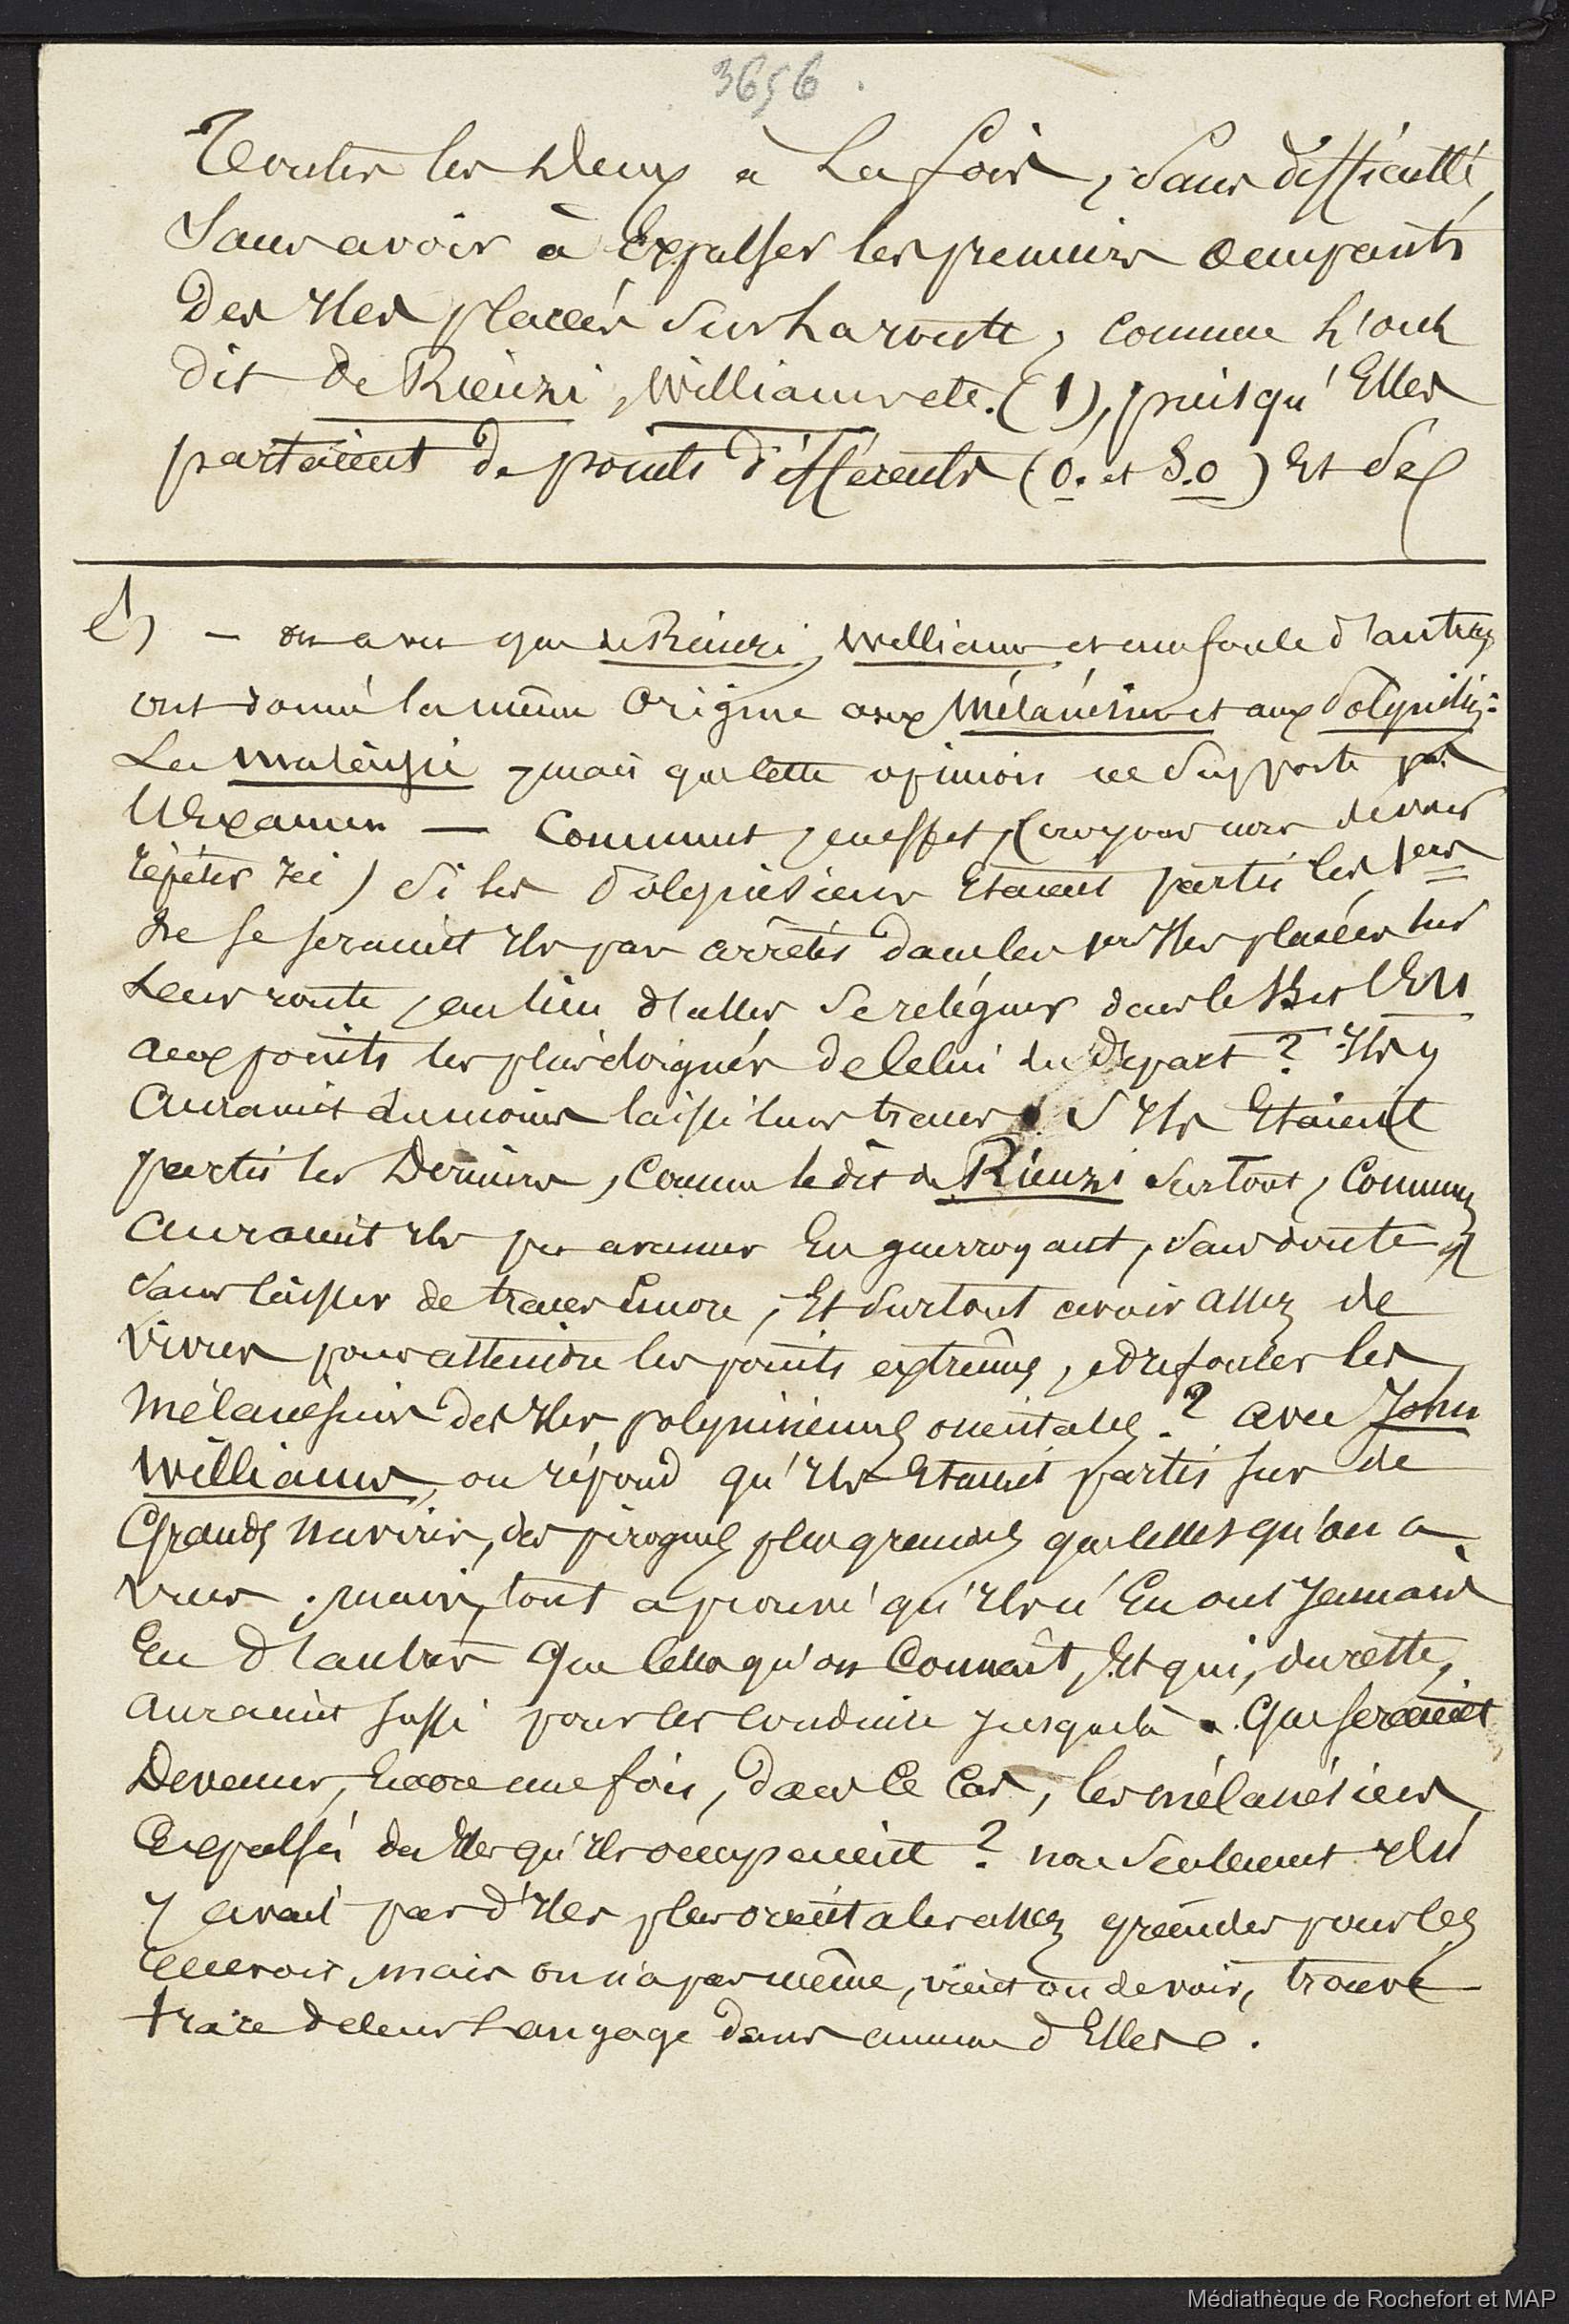 3656.
Toutes les Deux à La fois, Sans difficulté,
Sans avoir à Expulser les premiers occupants
Des Iles placées Sur La route, comme L'ont
dit de Rienzi, Williams etc. (1), puisqu'Elles
partaient de points différents (O. et S.O) Et Se
(1) — on a vu que de Rienzi, Williams et une foule d'autres
ont donné la même Origine aux Mélanésiens et aux Polynésiens:
La Malaisie, mais que cette opinion ne Supporte pas
L'Examen — Comment, en effet, (croyons nous devoir
répéter ici) Si les Polynésiens Etaient partis les 1ers
Ne Se seraient Ils pas arrêtés dans les 1res Iles placées sur
Leur route, au lieu d'aller Se reléguer dans le N. et L'Est
aux points les plus éloignés de Celui du Départ? Ils y
Auraient du moins laissé leurs traces. S'Ils Etaient
partis les Derniers, Comme le dit de Rienzi Surtout, Comment
Auraient Ils pu avancer En guerroyant, Sans doute,
Sans laisser de traces Encore, Et Surtout avoir assez de
Vivres pour atteindre les points extrêmes, et refouler les
Mélanésiens des Iles polynésiennes orientales? avec John
Williams, on répond qu'Ils Etaient partis sur de
Grands Navires, des pirogues plus grandes que celles qu'on a
vues; mais, tout a prouvé qu'Ils n'En ont Jamais
Eu d'autres Que Celles qu'on Connaît, Et qui, du reste,
Auraient suffi pour les Conduire Jusque là. Que seraient
Devenus, Encore une fois, dans Ce Cas, les mélanésiens
Expulsés des Iles qu'Ils occupaient? non Seulement Il n'
y avait pas d'Iles plus orientales assez grandes pour les
recevoir, mais on n'a pas même, vient on de voir, trouvé
trace de leur Langage dans aucune d'Elles.
Médiathèque de Rochefort et MAP